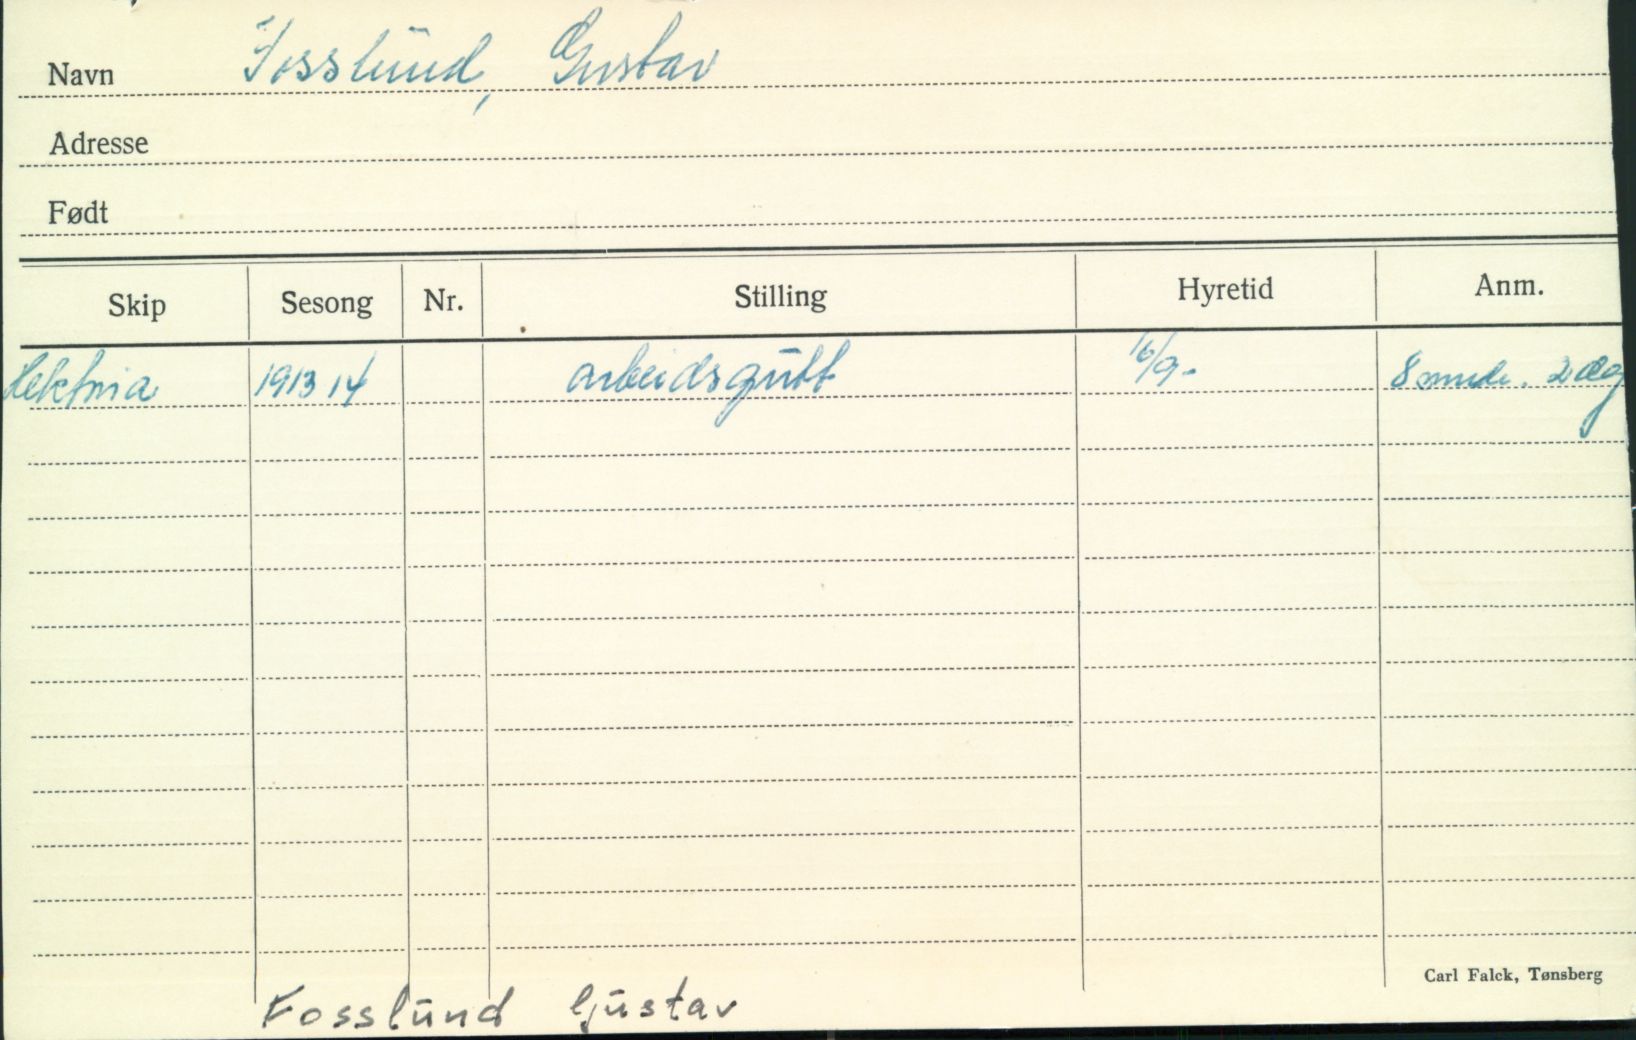 Navn Fosslund, Gustav
Adresse
Født
Skip Sesong Nr. Stilling Hyretid Anm.
Hektoria 1913 14 arbeidsgutt 16/9- 8 mnde. 2 dg
Carl Falck, Tønsberg
Fosslund Gustav